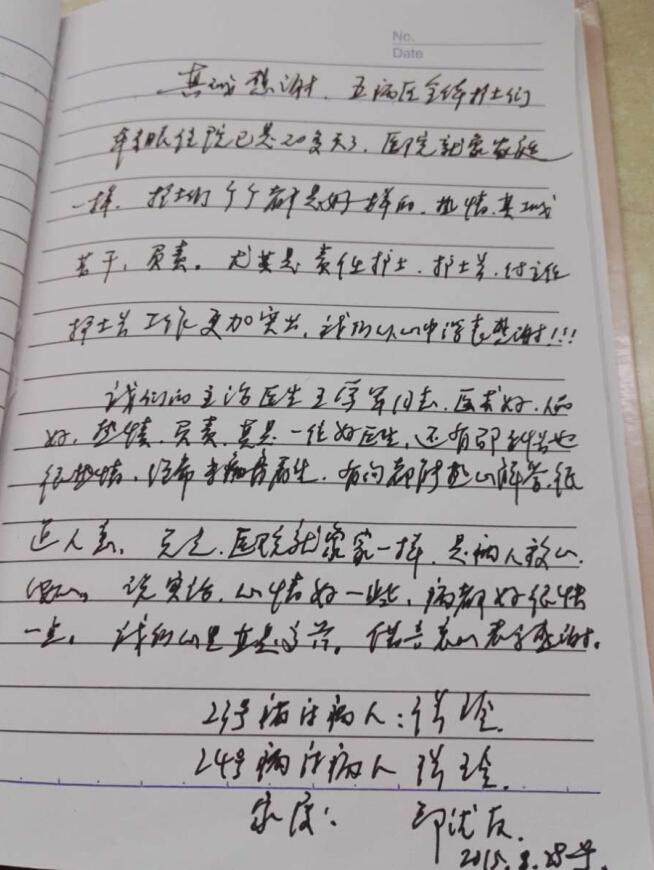 No.
Date
真诚感谢. 五病区全体护士们
住院已是20多天了. 医院就象家庭
一样. 护士们个个都是好样的. 热情. 真诚
苦干, 负责。尤其是责任护士. 护士长. 付主任
护士长工作更加突出, 我们从心中深表感谢!!!
我们的主治医生王学军同志. 医术好. 人品
好. 热情. 负责. 真是一位好医生, 还有
很热情. 经常来病房看望. 有问都耐心解答. 很
近人意. 总之. 医院就象家一样. 是病人放心.
舒心。说实话. 心情好一些, 病都好很快
一点. 我们心里真是高兴. 借言衷心表于感谢.
23号病床病人:
24号病床病人
家属: 邵洪友.
2015.8.28号.